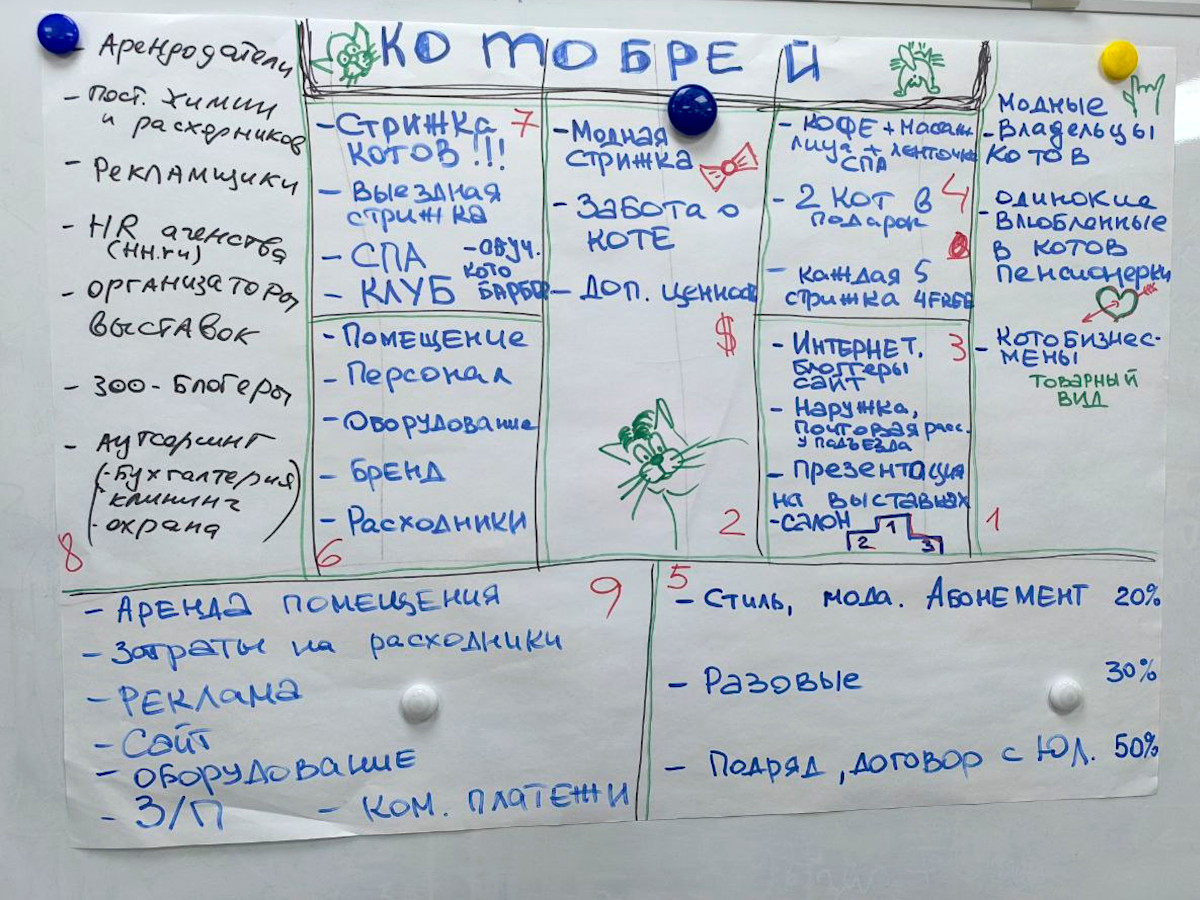 КОТОБРЕЙ
- Арендодатели
- Пост. химии
и расходников
- Рекламщики
- HR агенства
(HH.ru)
- организаторы
выставок
- зоо-блогеры
- Аутсорсинг
(-Бухгалтерия
- клининг
- охрана)
8
- Стрижка 7
котов!!!
- Выездная
стрижка
- СПА
- обуч.
кото
барбер
- КЛУБ
- Помещение
- Персонал
- Оборудование
- Бренд
- Расходники
6
- Модная
стрижка
- Забота о
коте
- Доп. ценность
$
2
- кофе + массаж
лица + ленточка
СПА
- 2 кот в 4
подарок
- каждая 5
стрижка 4FREE
- Интернет, 3
блоггеры
сайт
- Наружка,
почтовая расс.
у подъезда
- презентация
на выставках
- салон
2 1 3
модные
- Владельцы
котов
одинокие
- влюбленные
в котов
пенсионерки
- Котобизнес-
мены
товарный
вид
1
- Аренда помещения 9
- Затраты на расходники
- Реклама
- Сайт
- оборудование
- З/П - ком. платежи
5
- Стиль, мода. Абонемент 20%
- Разовые 30%
- Подряд, договор с Юл. 50%